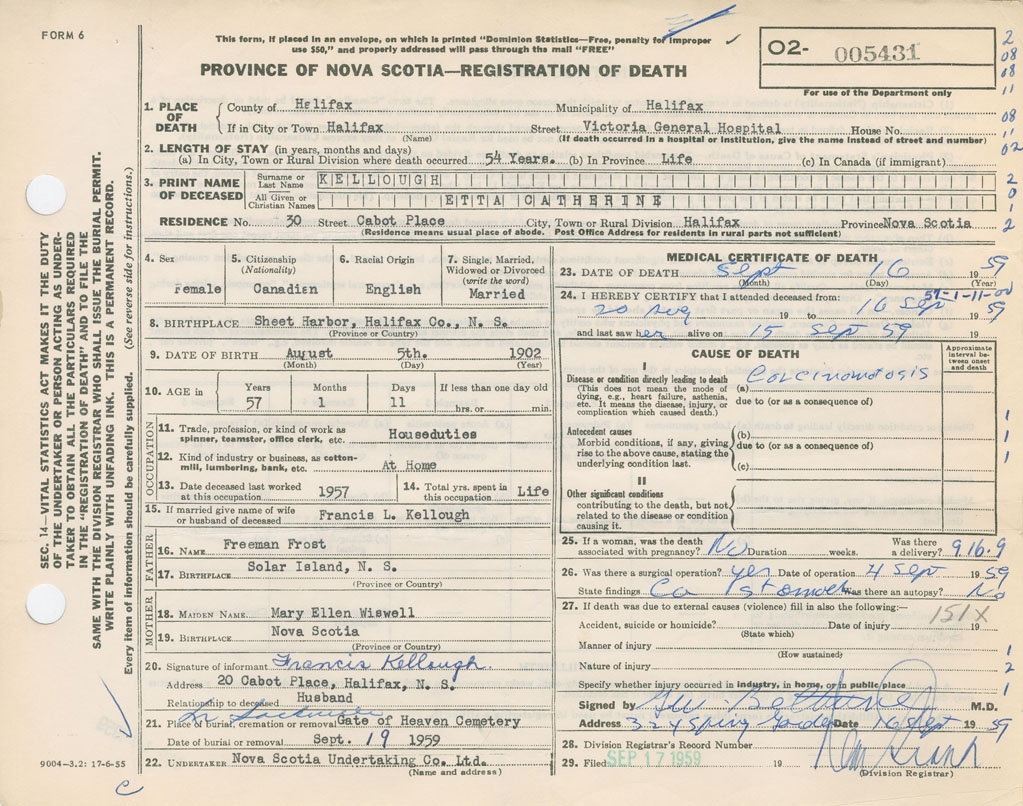 FORM 6
This form, if placed in an envelope, on which is printed "Dominion Statistics—Free, penalty for improper
use $50," and properly addressed will pass through the mail "FREE"
PROVINCE OF NOVA SCOTIA—REGISTRATION OF DEATH
O2- 005431
For use of the Department only
2
08
08
11
08
11
02
2
0
1
2
SEC. 14—VITAL STATISTICS ACT MAKES IT THE DUTY
OF THE UNDERTAKER OR PERSON ACTING AS UNDER-
TAKER TO OBTAIN ALL THE PARTICULARS REQUIRED
IN THE "REGISTRATION OF DEATH" AND TO FILE THE
SAME WITH THE DIVISION REGISTRAR WHO SHALL ISSUE THE BURIAL PERMIT.
WRITE PLAINLY WITH UNFADING INK. THIS IS A PERMANENT RECORD.
Every item of information should be carefully supplied. (See reverse side for instructions.)
1. PLACE OF DEATH
County of Halifax Municipality of Halifax
If in City or Town Halifax Street Victoria General Hospital House No.
(Name) (If death occurred in a hospital or institution, give the name instead of street and number)
2. LENGTH OF STAY (in years, months and days)
(a) In City, Town or Rural Division where death occurred 54 Years. (b) In Province Life (c) In Canada (if immigrant)
3. PRINT NAME OF DECEASED
Surname or Last Name KELLOUGH
All Given or Christian Names ETTA CATHERINE
RESIDENCE No. 30 Street Cabot Place City, Town or Rural Division Halifax Province Nova Scotia
(Residence means usual place of abode. Post Office Address for residents in rural parts not sufficient)
4. Sex
Female
5. Citizenship (Nationality)
Canadien
6. Racial Origin
English
7. Single, Married, Widowed or Divorced (write the word)
Married
8. BIRTHPLACE Sheet Harbor, Halifax Co., N. S.
(Province or Country)
9. DATE OF BIRTH August 5th. 1902
(Month) (Day) (Year)
10. AGE in Years Months Days If less than one day old
57 1 11 hrs. or min.
OCCUPATION
11. Trade, profession, or kind of work as
spinner, teamster, office clerk, etc. Houseduties
12. Kind of industry or business, as cotton-
mill, lumbering, bank, etc. At Home
13. Date deceased last worked
at this occupation 1957
14. Total yrs. spent in
this occupation Life
15. If married give name of wife
or husband of deceased Francis L. Kellough
FATHER
16. NAME Freeman Frost
17. BIRTHPLACE Solar Island, N. S.
(Province or Country)
MOTHER
18. MAIDEN NAME Mary Ellen Wiswell
19. BIRTHPLACE Nova Scotia
(Province or Country)
20. Signature of informant Francis Kellough.
Address 20 Cabot Place, Halifax, N. S.
Relationship to deceased Husband
21. Place of burial, cremation or removal Gate of Heaven Cemetery
Date of burial or removal Sept. 19 1959
22. UNDERTAKER Nova Scotia Undertaking Co. Ltd.
(Name and address)
9004—3.2: 17-6-55
C
MEDICAL CERTIFICATE OF DEATH
23. DATE OF DEATH Sept 16 1959
(Month) (Day) (Year)
57-1-11-00
24. I HEREBY CERTIFY that I attended deceased from:
20 Aug 19 to 16 Sep 1959
and last saw her alive on 15 Sep 59 19
CAUSE OF DEATH
Approximate interval between onset and death
I
Disease or condition directly leading to death
(This does not mean the mode of
dying, e.g., heart failure, asthenia,
etc. It means the disease, injury, or
complication which caused death.)
(a) Carcinomatosis
due to (or as a consequence of)
Antecedent causes
Morbid conditions, if any, giving
rise to the above cause, stating the
underlying condition last.
(b)
due to (or as a consequence of)
(c)
II
Other significant conditions
contributing to the death, but not
related to the disease or condition
causing it.
1
1
1
25. If a woman, was the death
associated with pregnancy? No Duration weeks. Was there a delivery? 916.9
26. Was there a surgical operation? yes Date of operation 4 Sept 1959
State findings Ca Stomach Was there an autopsy? No
27. If death was due to external causes (violence) fill in also the following:—
151X
Accident, suicide or homicide? Date of injury 19
(State which)
Manner of injury
(How sustained)
Nature of injury
Specify whether injury occurred in industry, in home, or in public place
1
2
1
Signed by M.D.
Address 324 Spring Garden Date 16 Sept 1959
28. Division Registrar's Record Number
29. Filed SEP 17 1959 19
(Division Registrar)